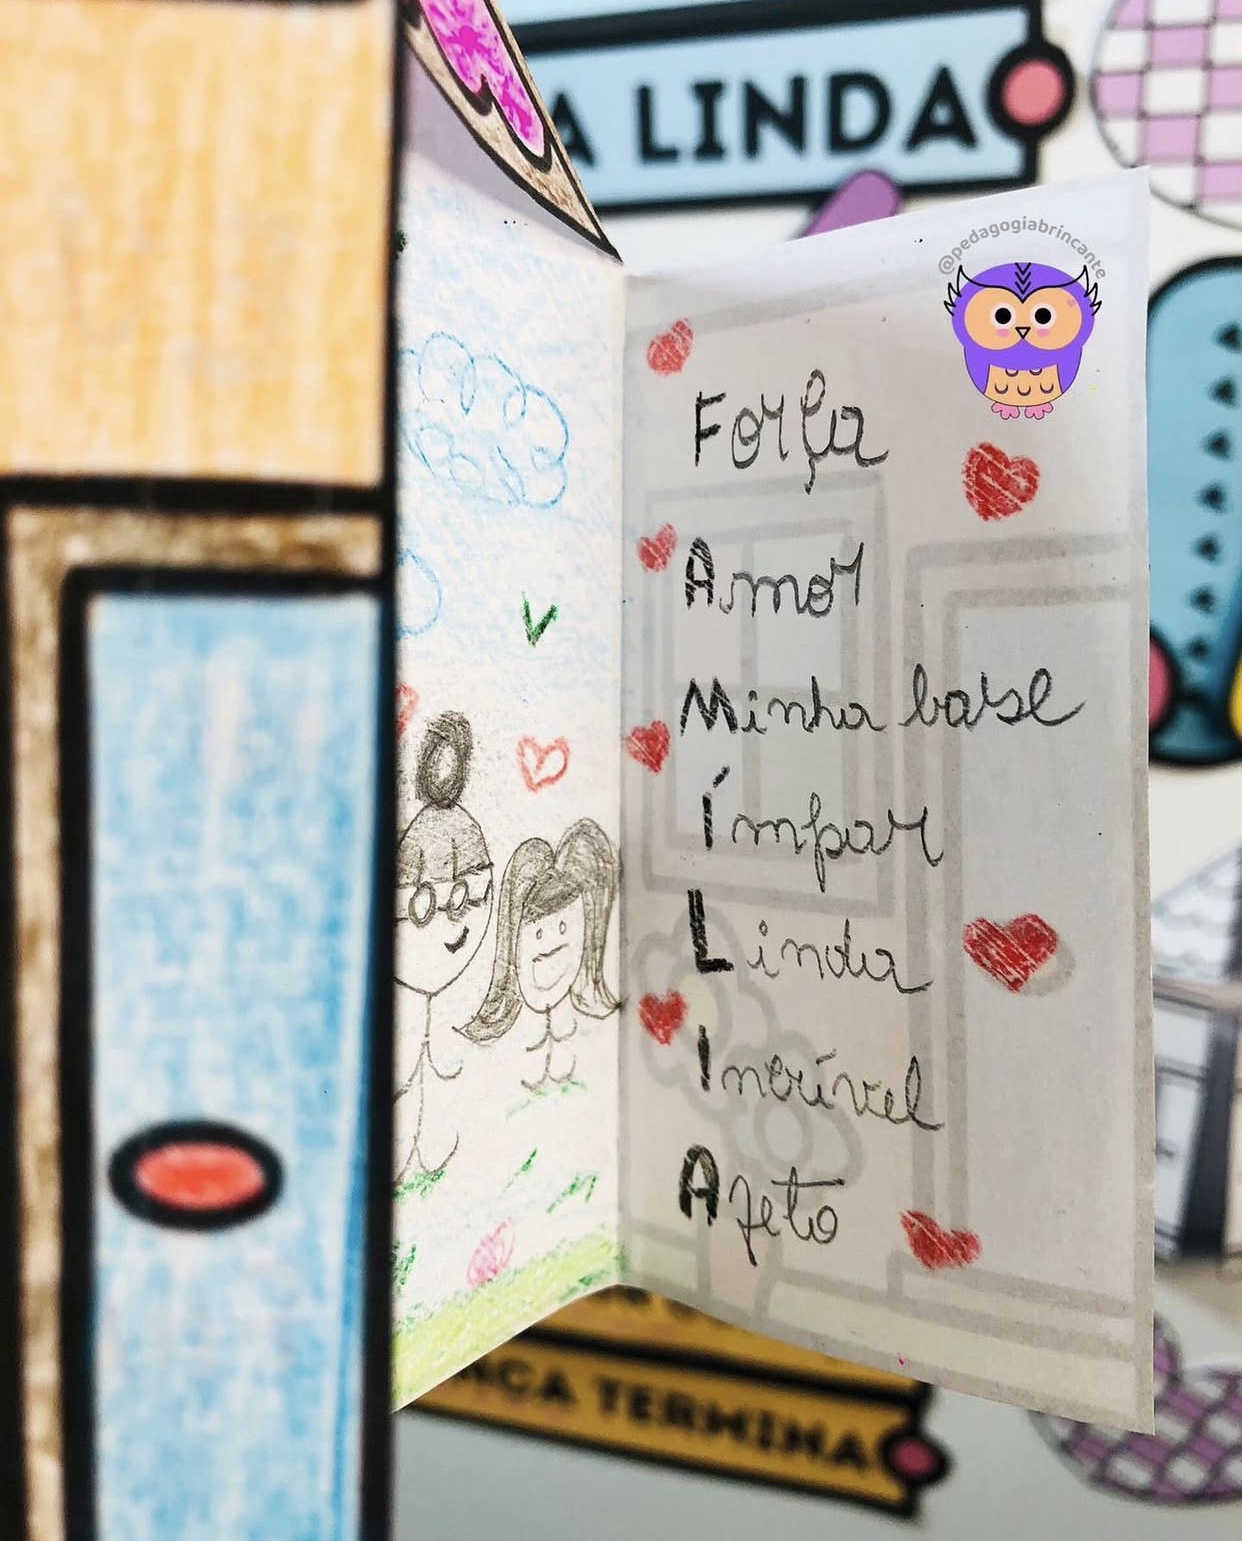 A LINDA
@pedagogiabrincante
Força
Amor
Minha base
Ímpar
Linda
Incrível
Afeto
TERMINA